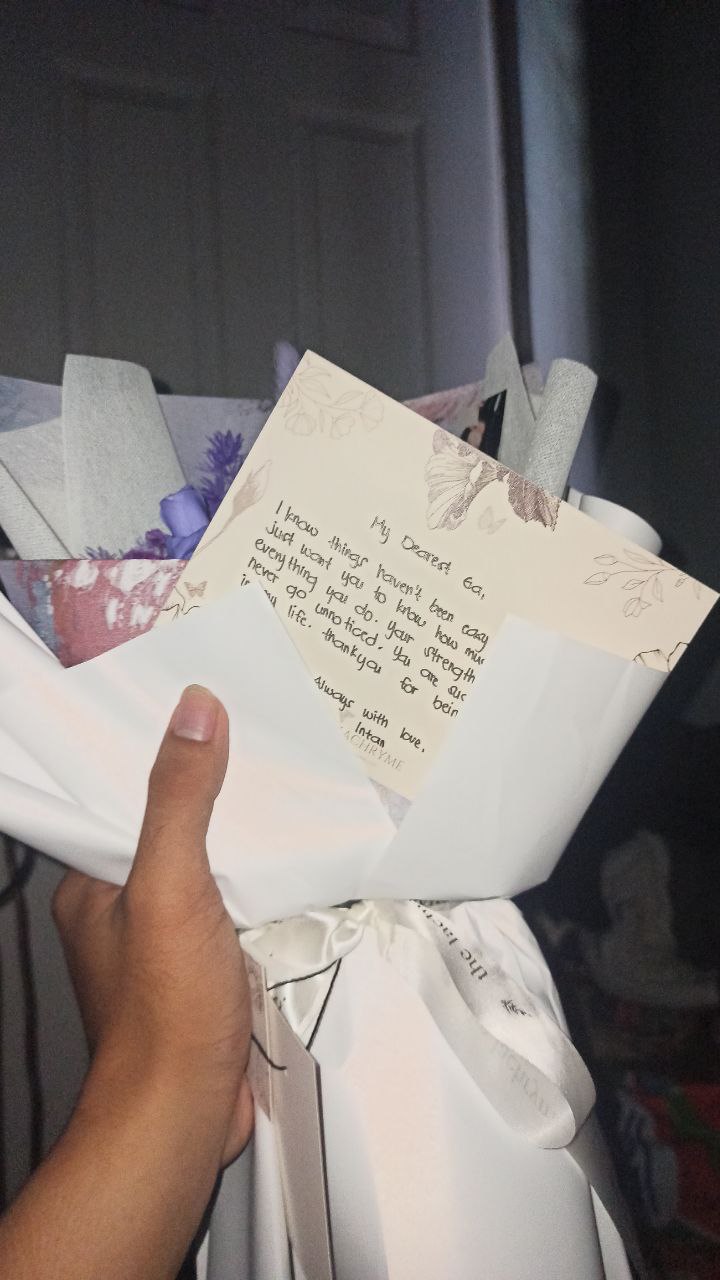 My Dearest Ga,
I know things haven't been easy
just want you to know how
everything you do. your strength
never go unnoticed. you are
my life. thankyou for
Always with love,
Intan
LACHRYME
the lach